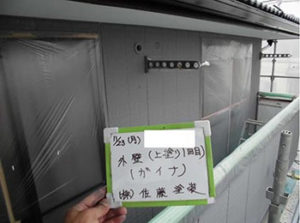 11/23(月)
外壁(上塗り1回目)
(ガイナ)
(株)佐藤塗装